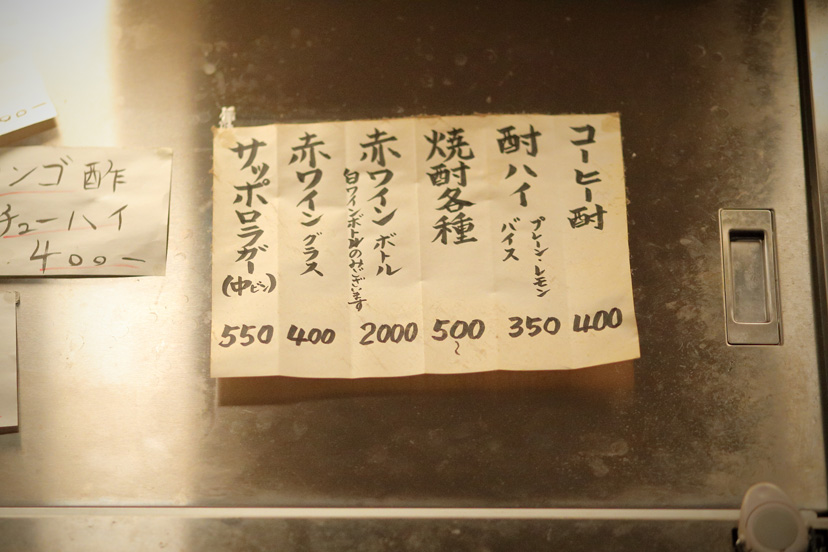 コーヒー酎
400
酎ハイ
プレーン・レモン
バイス
350
焼酎各種
500
〜
赤ワイン ボトル
白ワインボトルのみございます
2000
赤ワイン グラス
400
サッポロラガー(中ビン)
550
ンゴ酢
チューハイ
400ー